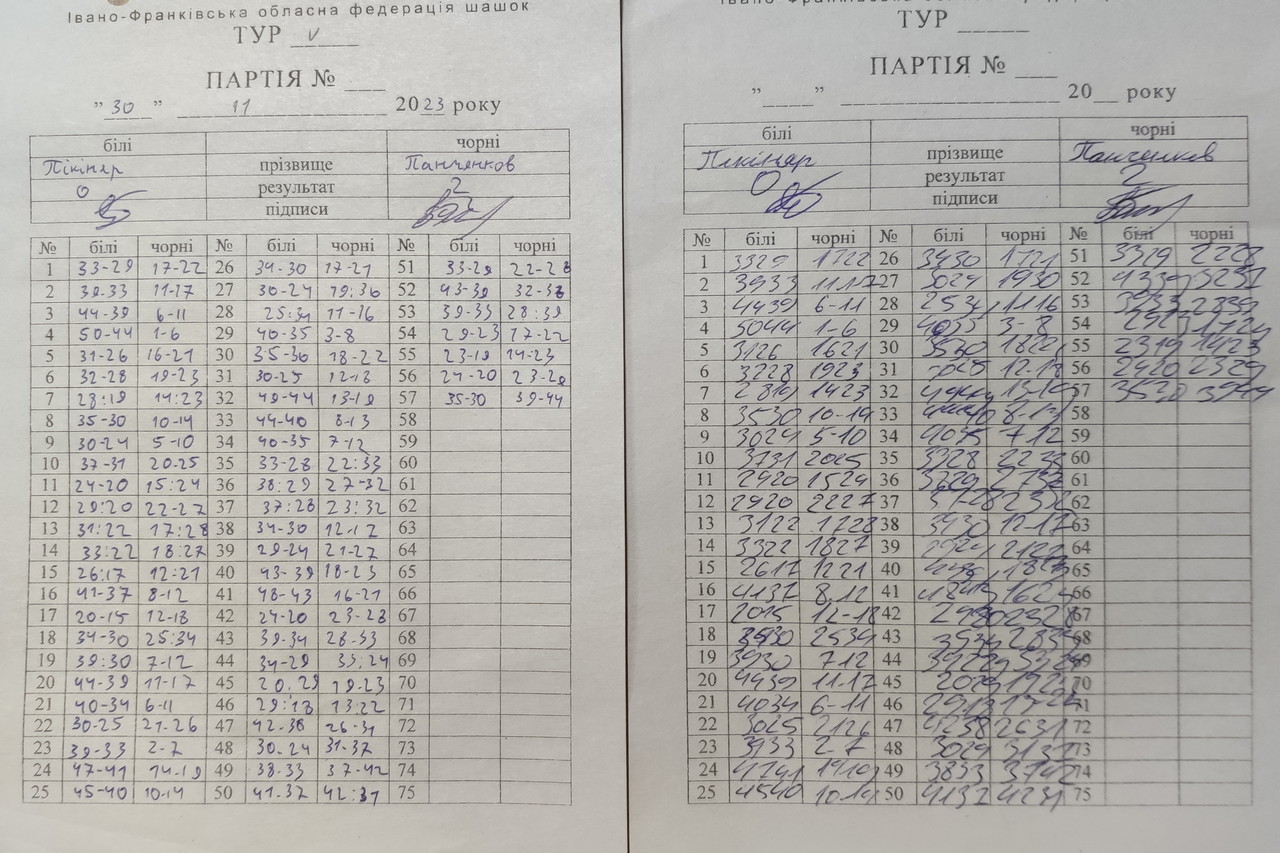 Івано-Франківська обласна федерація шашок
ТУР V
ПАРТІЯ № ___
"30" 11 2023 року
білі чорні
Пікіняр прізвище Панченков
0 результат 2
підписи
№ білі чорні № білі чорні № білі чорні
1 33-29 17-22 26 34-30 17-21 51 33-29 22-28
2 39-33 11-17 27 30-24 19:30 52 43-39 32-38
3 44-39 6-11 28 25:34 11-16 53 39-33 28:39
4 50-44 1-6 29 40-35 3-8 54 29-23 17-22
5 31-26 16-21 30 35-30 18-22 55 23-19 14-23
6 32-28 19-23 31 30-25 12-18 56 24-20 23-29
7 28:19 14:23 32 49-44 13-19 57 35-30 39-44
8 35-30 10-14 33 44-40 8-13 58
9 30-24 5-10 34 40-35 7-12 59
10 37-31 20-25 35 33-28 22:33 60
11 24-20 15:24 36 38:29 27-32 61
12 29:20 22-27 37 37:28 23:32 62
13 31:22 17:28 38 34-30 12-17 63
14 33:22 18:27 39 29-24 21-27 64
15 26:17 12:21 40 43-39 18-23 65
16 41-37 8-12 41 48-43 16-21 66
17 20-15 12-18 42 24-20 23-28 67
18 34-30 25:34 43 39-34 28-33 68
19 39:30 7-12 44 34-29 33:24 69
20 44-39 11-17 45 20:29 19-23 70
21 40-34 6-11 46 29:18 13:22 71
22 30-25 21-26 47 42-38 26-31 72
23 39-33 2-7 48 30-24 31-37 73
24 47-41 14-19 49 38-33 37-42 74
25 45-40 10-14 50 41-37 42:31 75
ТУР _____
ПАРТІЯ № ___
"____" ____________________ 20__ року
білі чорні
Пікіняр прізвище Панченков
0 результат 2
підписи
№ білі чорні № білі чорні № білі чорні
1 3329 1722 26 3430 1721 51 3329 2228
2 3933 1117 27 3024 1930 52 4339 3237
3 4439 6-11 28 2534 1116 53 3933 2839
4 5044 1-6 29 4035 3-8 54 2923
5 3126 1621 30 3530 55 2319 1423
6 3228 1923 31 12-18 56 2420 2329
7 2819 1423 32 57 3530 3944
8 3530 10-14 33 8-13 58
9 3024 5-10 34 4035 712 59
10 3731 2025 35 3328 60
11 2420 1524 36 61
12 2920 2227 37 62
13 3122 1728 38 3430 12-17 63
14 3322 1827 39 64
15 2617 1221 40 65
16 4137 8.12 41 66
17 2015 12-18 42 67
18 43 68
19 3930 712 44 69
20 4439 11-17 45 70
21 4034 6-11 46 71
22 3025 2126 47 4238 2631 72
23 3933 2-7 48 3024 3137 73
24 4741 49 3833 3742 74
25 4540 10-14 50 4137 4231 75